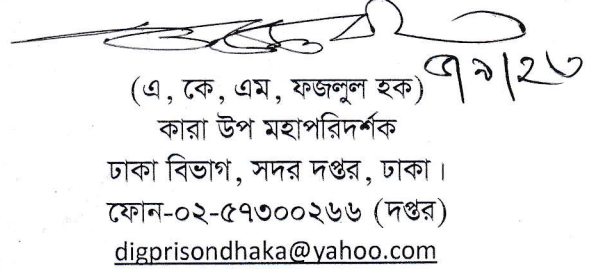 (এ, কে, এম, ফজলুল হক)
কারা উপ মহাপরিদর্শক
ঢাকা বিভাগ, সদর দপ্তর, ঢাকা।
ফোন-০২-৫৭৩০০২৬৬ (দপ্তর)
digprisondhaka@yahoo.com